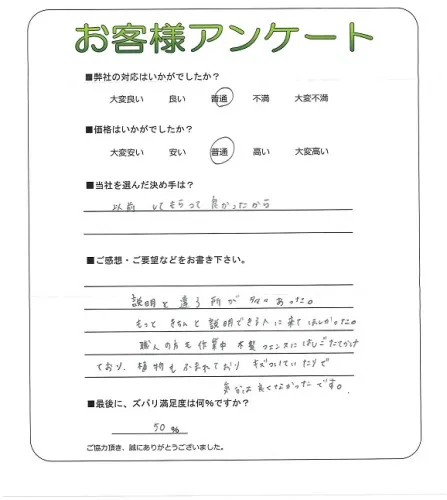 お客様アンケート
■弊社の対応はいかがでしたか?
大変良い 良い 普通 不満 大変不満
■価格はいかがでしたか?
大変安い 安い 普通 高い 大変高い
■当社を選んだ決め手は?
以前 してもらって 良かったから
■ご感想・ご要望などをお書き下さい。
説明と違う所が多々あった。
もっと きちんと説明できる人に来てほしかった。
職人の方も作業中 木製フェンスにはしごたてかけ
ており、植物もふまれており キズついていたりで
気分は良くなかったです。
■最後に、ズバリ満足度は何%ですか?
50 %
ご協力頂き、誠にありがとうございました。